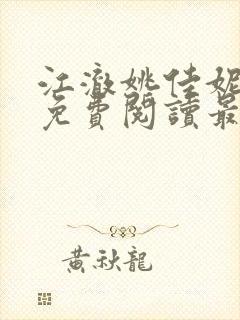 江澈姚佳妮
免費閱讀最
黃秋龍